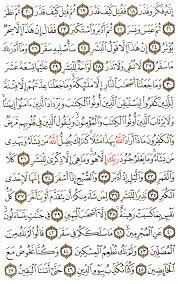 إِنَّهُ فَكَّرَ وَقَدَّرَ ١٨ فَقُتِلَ كَيْفَ قَدَّرَ ١٩ ثُمَّ قُتِلَ كَيْفَ قَدَّرَ ٢٠ ثُمَّ نَظَرَ
٢١ ثُمَّ عَبَسَ وَبَسَرَ ٢٢ ثُمَّ أَدْبَرَ وَاسْتَكْبَرَ ٢٣ فَقَالَ إِنْ هَٰذَا إِلَّا سِحْرٌ
يُؤْثَرُ ٢٤ إِنْ هَٰذَا إِلَّا قَوْلُ الْبَشَرِ ٢٥ سَأُصْلِيهِ سَقَرَ ٢٦ وَمَا أَدْرَىٰكَ
مَا سَقَرُ ٢٧ لَا تُبْقِي وَلَا تَذَرُ ٢٨ لَوَّاحَةٌ لِّلْبَشَرِ ٢٩ عَلَيْهَا تِسْعَةَ عَشَرَ
٣٠ وَمَا جَعَلْنَا أَصْحَٰبَ النَّارِ إِلَّا مَلَٰٓئِكَةً وَمَا جَعَلْنَا عِدَّتَهُمْ إِلَّا فِتْنَةً
لِّلَّذِينَ كَفَرُوا لِيَسْتَيْقِنَ الَّذِينَ أُوتُوا الْكِتَٰبَ وَيَزْدَادَ الَّذِينَ ءَامَنُوا إِيمَٰنًا
وَلَا يَرْتَابَ الَّذِينَ أُوتُوا الْكِتَٰبَ وَالْمُؤْمِنُونَ وَلِيَقُولَ الَّذِينَ فِي قُلُوبِهِم مَّرَضٌ
وَالْكَٰفِرُونَ مَاذَا أَرَادَ اللَّهُ بِهَٰذَا مَثَلًا كَذَٰلِكَ يُضِلُّ اللَّهُ مَن يَشَاءُ وَيَهْدِي
مَن يَشَاءُ وَمَا يَعْلَمُ جُنُودَ رَبِّكَ إِلَّا هُوَ وَمَا هِيَ إِلَّا ذِكْرَىٰ لِلْبَشَرِ ٣١ كَلَّا
وَالْقَمَرِ ٣٢ وَاللَّيْلِ إِذْ أَدْبَرَ ٣٣ وَالصُّبْحِ إِذَا أَسْفَرَ ٣٤ إِنَّهَا لَإِحْدَى
الْكُبَرِ ٣٥ نَذِيرًا لِّلْبَشَرِ ٣٦ لِمَن شَاءَ مِنكُمْ أَن يَتَقَدَّمَ أَوْ يَتَأَخَّرَ ٣٧ كُلُّ
نَفْسٍ بِمَا كَسَبَتْ رَهِينَةٌ ٣٨ إِلَّا أَصْحَٰبَ الْيَمِينِ ٣٩ فِي جَنَّٰتٍ يَتَسَاءَلُونَ
٤٠ عَنِ الْمُجْرِمِينَ ٤١ مَا سَلَكَكُمْ فِي سَقَرَ ٤٢ قَالُوا لَمْ نَكُ مِنَ
الْمُصَلِّينَ ٤٣ وَلَمْ نَكُ نُطْعِمُ الْمِسْكِينَ ٤٤ وَكُنَّا نَخُوضُ مَعَ
الْخَائِضِينَ ٤٥ وَكُنَّا نُكَذِّبُ بِيَوْمِ الدِّينِ ٤٦ حَتَّىٰ أَتَىٰنَا الْيَقِينُ ٤٧